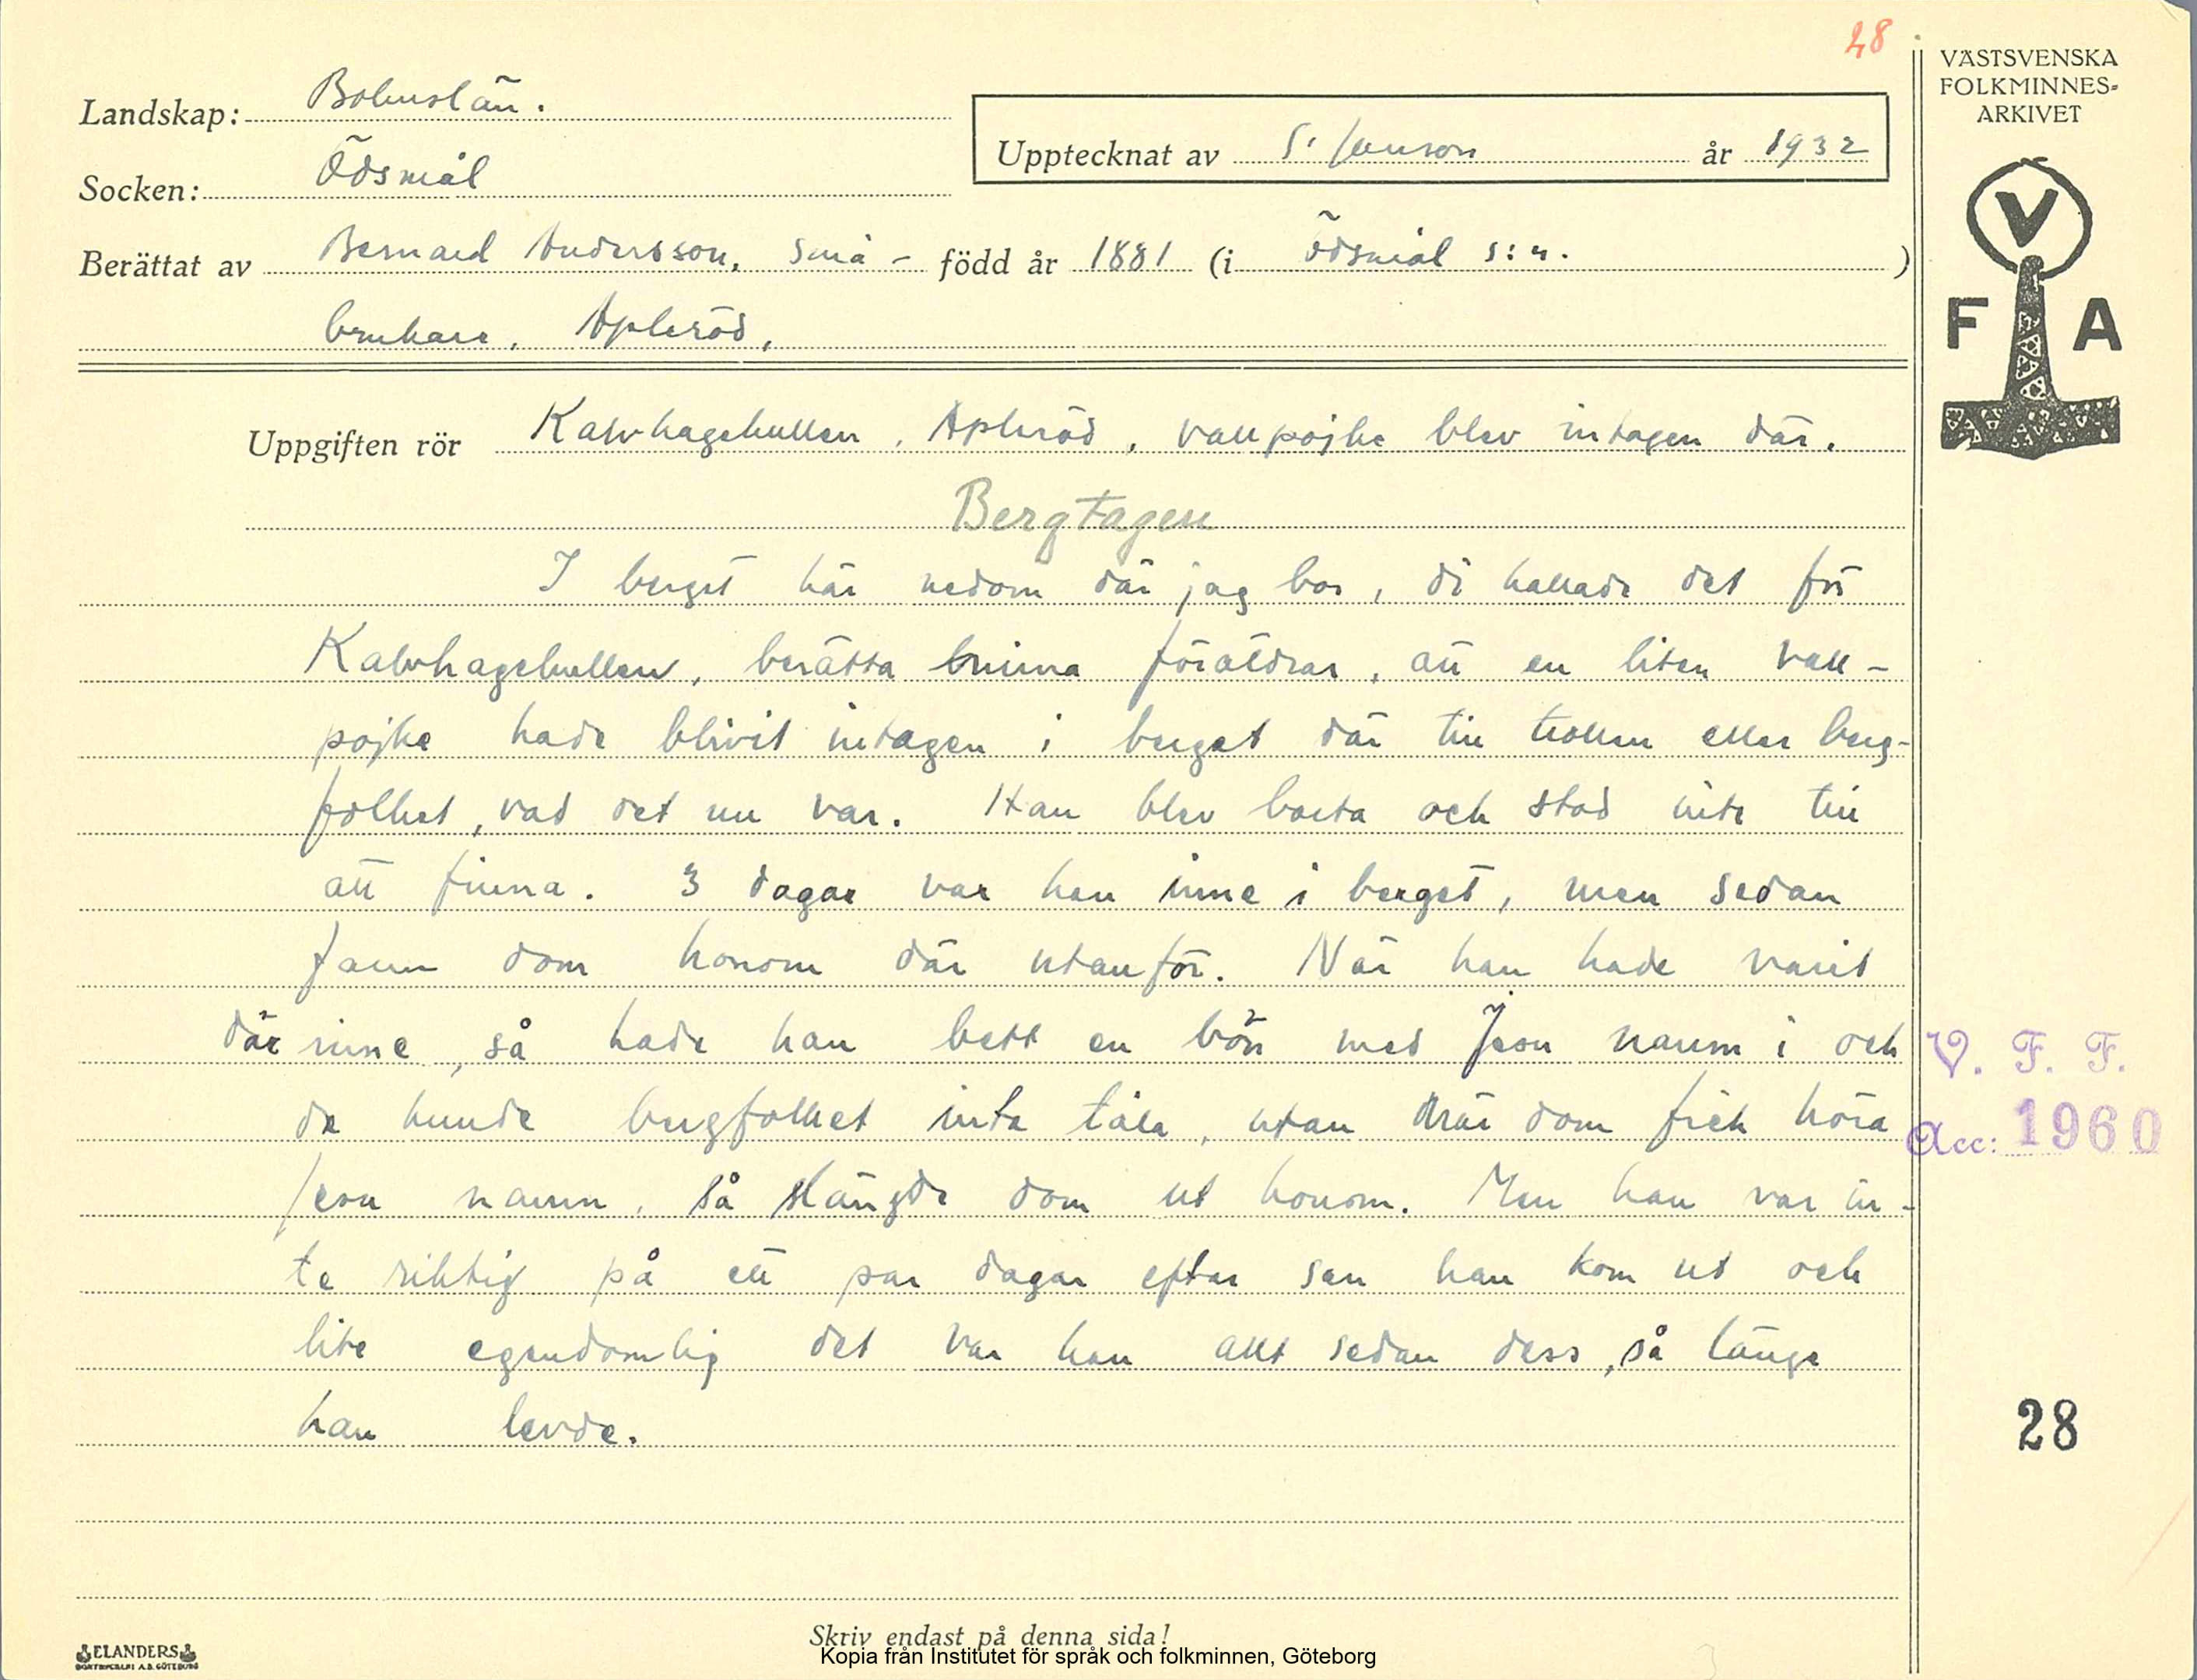 28
VÄSTSVENSKA
FOLKMINNES-
ARKIVET
Landskap: Bohuslän.
Upptecknat av S. Janson år 1932
Socken: Ödsmål
Berättat av Bernard Andersson, Små- född år 1881 (i Ödsmål s:n.)
brukare, Apleröd,
V
F A
Uppgiften rör Kalvhagekullen, Apleröd, vallpojke blev intagen där.
Bergtagen
I berget här nedom där jag bor, di kallade det för
Kalvhagekullen, berätta mina föräldrar, att en liten vall-
pojke hade blivit intagen i berget där till trollen eller berg-
folket, vad det nu var. Han blev borta och stod inte till
att finna. 3 dagar var han inne i berget, men sedan
fann dom honom där utanför. När han hade varit
där inne, så hade han bett en bön med Jesu namn i och
de kunde bergfolket inte tåla, utan när dom fick höra
Jesu namn, så slängde dom ut honom. Men han var in-
te riktig på ett par dagar efter sen han kom ut och
lite egendomlig det var han allt sedan dess, så länge
han levde.
V. F. F.
Acc: 1960
28
Skriv endast på denna sida!
ELANDERS
BOKTRYCKERI A.B. GÖTEBORG
Kopia från Institutet för språk och folkminnen, Göteborg